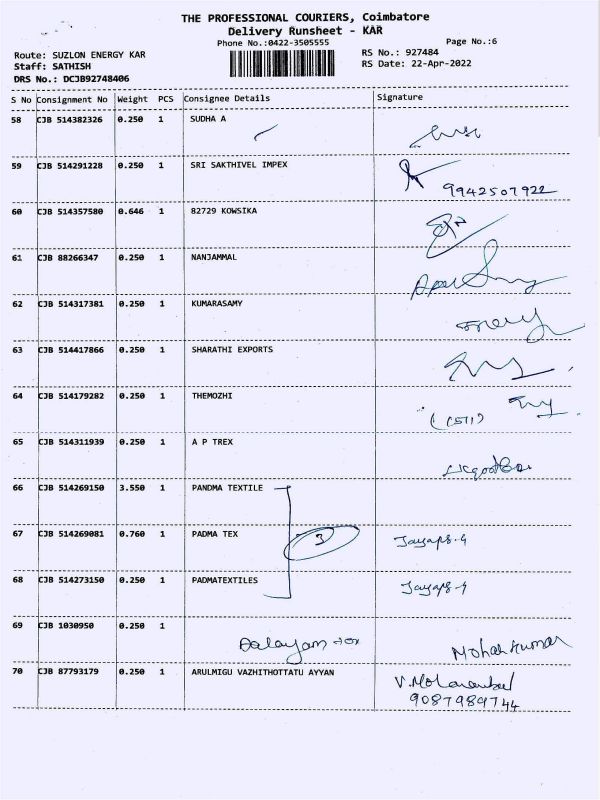 THE PROFESSIONAL COURIERS, Coimbatore
Delivery Runsheet - KAR
Phone No.:0422-3505555
Page No.:6
Route: SUZLON ENERGY KAR
RS No.: 927484
Staff: SATHISH
RS Date: 22-Apr-2022
DRS No.: DCJB92748406
S No Consignment No Weight PCS Consignee Details Signature
58 CJB 514382326 0.250 1 SUDHA A
59 CJB 514291228 0.250 1 SRI SAKTHIVEL IMPEX
9942507922
60 CJB 514357580 0.646 1 82729 KOWSIKA
61 CJB 88266347 0.250 1 NANJAMMAL
62 CJB 514317381 0.250 1 KUMARASAMY
63 CJB 514417866 0.250 1 SHARATHI EXPORTS
64 CJB 514179282 0.250 1 THEMOZHI
65 CJB 514311939 0.250 1 A P TREX
66 CJB 514269150 3.550 1 PANDMA TEXTILE
67 CJB 514269081 0.760 1 PADMA TEX 3
68 CJB 514273150 0.250 1 PADMATEXTILES
69 CJB 1030950 0.250 1
Mohan Kumar
70 CJB 87793179 0.250 1 ARULMIGU VAZHITHOTTATU AYYAN
9087989744